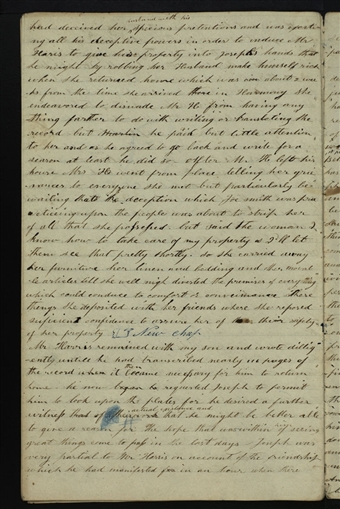 husband with his
had deceived her officious pretentions and was
ing all his deceptive powers in order to induce Mr
Harris to give his property into Joseph's hands that
he might by robbing her Husband make himself rich
when she returned home which was in about 2 wee
ks from the time she arrived there in Harmony she
endeavored to disuade Mr H from having any
thing farther to do with writing or translating the
record but Martin he paid but little attention
to her and as he agreed to go back and write for a
season at least he did so after Mr H left his
house Mrs H went from place telling her grie
vances to everyone she met but particularly be
wailing that the deception which Joe smith was pra
cticeing upon the people was about to strip her
of all that she possessed but said the woman I
know how to take care of my property & I'll let
them see that pretty shortly. so she carried away
her furniture her linen and bedding and other movea
ble articles till she well nigh divested the premises of everything
which could conduce to comfort or convenience These
things she deposited with her friends where she reposed
sufficient confidence to assure her of their safety
of her property New chap
Mr Harris remained with my son and wrote dillig
ently untill he had transcribed nearly pages of
the record when it became necessary for him to return
home he now began he requested Joseph to permit
him to look upon the plates for he desired a further
witness of their actual existance and
that he might be better able
to give a reason for the hope that was within of seeing
great things come to pass in the last days Joseph was
very partial to Mr Harris on account of the friendship
which he had manifested for in an hour when there